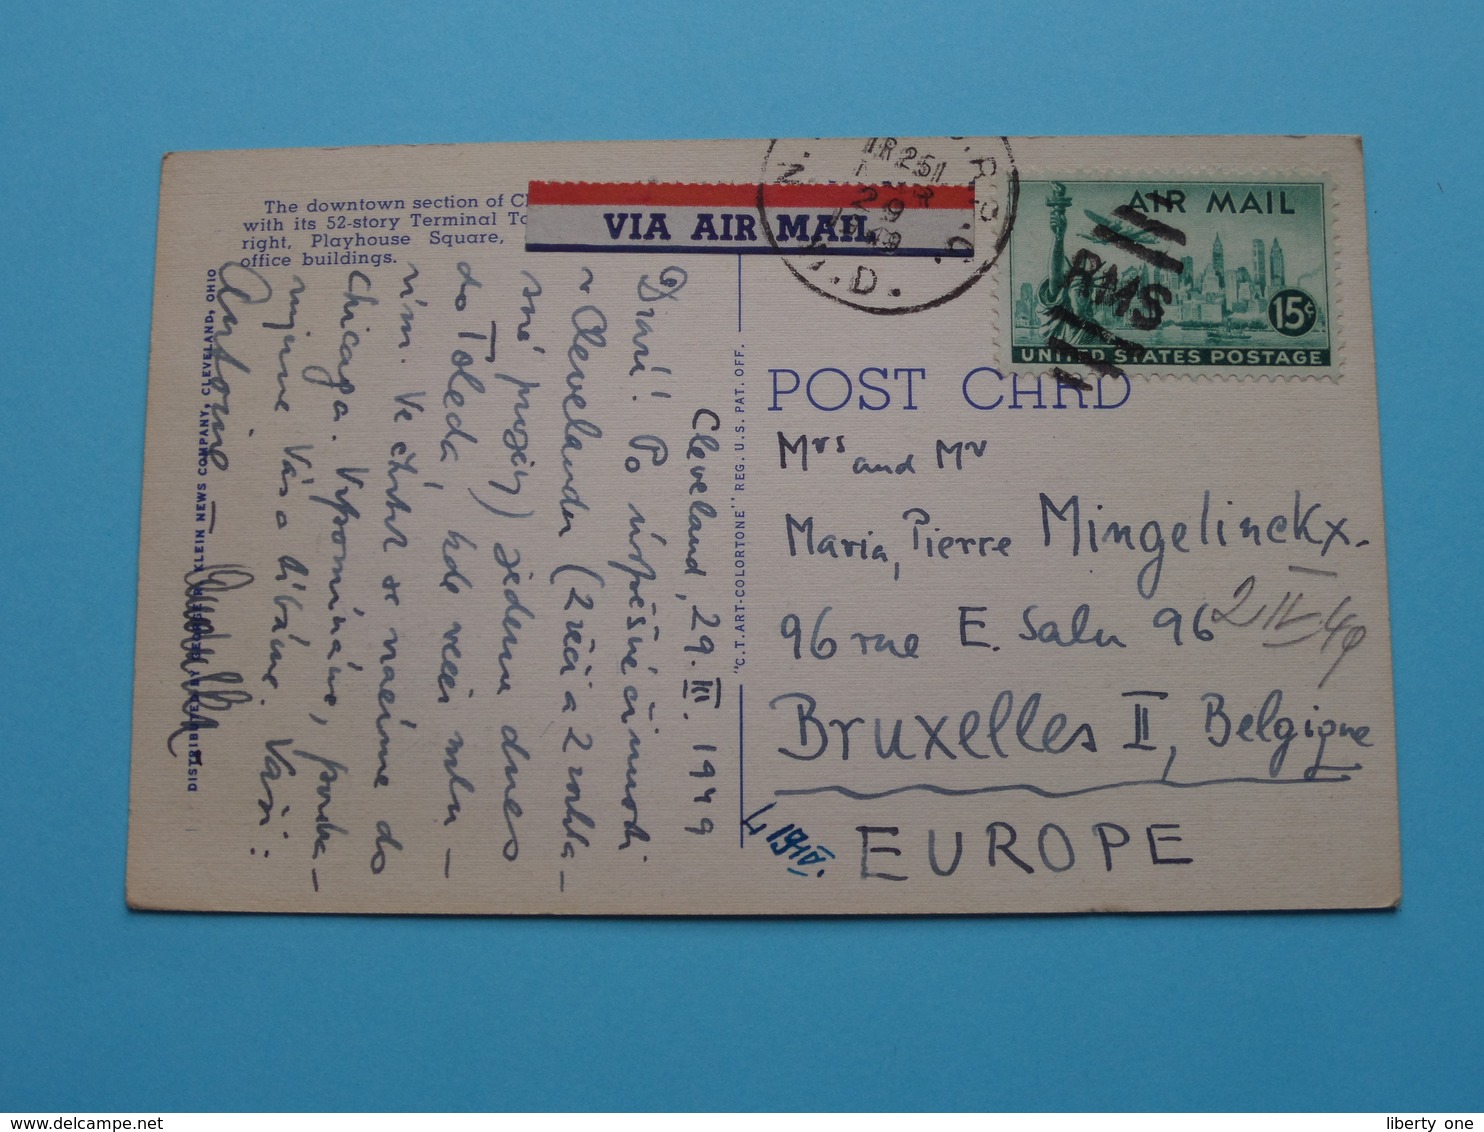 The downtown section of Cl
with its 52-story Terminal To
right, Playhouse Square,
office buildings.
VIA AIR MAIL
29
1949
AIR MAIL
RMS
15¢
UNITED STATES POSTAGE
POST CARD
DISTRIBUTED BY GEORGE R. KLEIN NEWS COMPANY, CLEVELAND, OHIO
"C.T. ART-COLORTONE" REG. U.S. PAT. OFF.
Cleveland, 29. III. 1949
Drazí! Po úspěšné činnosti
v Clevelandu (2 řeči a 2 rozhla-
sové projevy) jedeme dnes
do Toleda, kde večer mlu-
vím. Ve čtvrtek se vracíme do
Chicaga. Vzpomínáme, pozdra-
vujeme Vás a líbáme. Vaši:
Antoine
Mrs and Mr
Maria, Pierre Mingelinckx.
96 rue E. Salu 96
2 IV 49
Bruxelles II, Belgique
EUROPE
liberty one